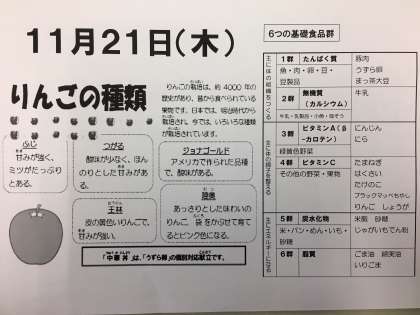 11月21日(木)
りんごの種類
りんごの栽培は、約4000年の
歴史があり、昔から食べられている
果物です。日本では、明治時代から
栽培され、今では、いろいろな種類
が売られています。
ふじ
甘みが強く、
ミツがたっぷり
とある。
つがる
酸味が少なく、ほん
のりとした甘みがあ
る。
ジョナゴールド
アメリカで作られた品種
で、酸味がある。
王林
皮の黄色いりんごで、
甘みが強い。
陸奥
あっさりとした味わいの
りんご 袋をかぶせて育て
るとピンク色になる。
「中華丼」は、「うずら卵」の個別対応献立です。
6つの基礎食品群
主に体の組織をつくる
1群 たんぱく質
魚・肉・卵・豆・
豆製品
豚肉
うずら卵
まっ茶大豆
2群 無機質
(カルシウム)
牛乳・乳製品・小魚・海そう
牛乳
主に体の調子を整える
3群 ビタミンA(β
-カロテン)
緑黄色野菜
にんじん
にら
4群 ビタミンC
その他の野菜・果物
たまねぎ
はくさい
たけのこ
ブラックマッペもやし
りんご しょうが
主にエネルギーになる
5群 炭水化物
米・パン・めん・いも・
砂糖
米飯 砂糖
じゃがいもでん粉
6群 脂質
ごま油 綿実油
いりごま